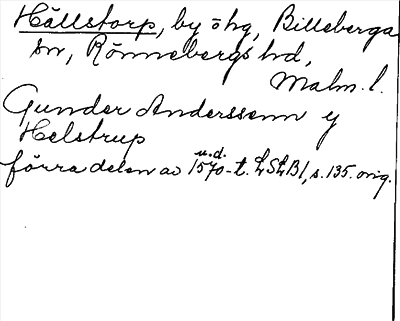 Hällstorp, by o hg, Billeberga
sn, Rönnebergs hd,
Malm. l.
Gunder Anderssenn y
Helstrup
u.d.
förra delen av 1570-t. LSLB1, s. 135. orig.